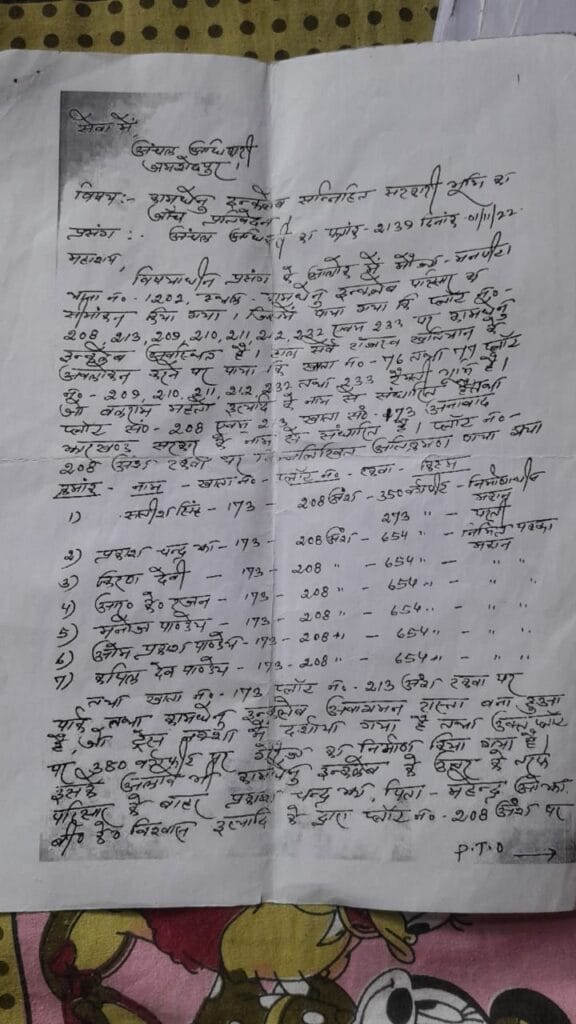 सेवा में,
अंचल अधिकारी
जमशेदपुर।
विषय:- कामधेनु इन्कलेव सन्निहित सरकारी भूमि का
जाँच प्रतिवेदन
प्रसंग:- अंचल अधिकारी का पत्रांक-2139 दिनांक-01/11/22
महाशय,
विषयाधीन प्रसंग के आलोक में मौजा-
थाना नं०-1202, स्थल-कामधेनु इन्क्लेव परिसर का
किया गया। जिसमें पाया गया कि प्लॉट नं०-
208, 213, 209, 210, 211, 212, 232 एवम 233 पर कामधेनु
इन्क्लेव अवस्थित है। हाल सर्वे खतियान के
अवलोकन करने पर पाया कि खाता नं०-76 तथा 77 प्लॉट
नं०-209, 210, 211, 212, 232 तथा 233 रैयती है।
जो बलराम महतो इत्यादि के नाम से संधारित है तथा
प्लॉट सं०-208 एवम 213 खाता सं०-173 अनाबाद
झारखण्ड सरकार के नाम से संधारित है। प्लॉट नं०-
208 अंश रकवा पर निम्नलिखित अतिक्रमण पाया गया
क्रमांक - नाम - खाता नं०- प्लॉट नं०- रकवा - किस्म
1) सतीश सिंह - 173 - 208 अंश - 350 वर्गफीट - निर्माणाधीन
मकान
273 " - परती
2) प्रकाश चन्द्र झा - 173 - 208 अंश - 654 " - निर्मित पक्का
मकान
3) किरण देवी - 173 - 208 " - 654 " - " "
4) आर० के० रंजन - 173 - 208 " - 654 " - " "
5) मनोज पाण्डेय - 173 - 208 " - 654 " - " "
6) ओम प्रकाश पाण्डेय - 173 - 208 " - 654 " - " "
7) कपिल देव पाण्डेय - 173 - 208 " - 654 " - " "
तथा खाता नं०-173 प्लॉट नं०-213 अंश रकवा पर
पार्क तथा कामधेनु इन्क्लेव आवागमन रास्ता बना हुआ
है जो ट्रेस नक्शा में दर्शाया गया है तथा उक्त प्लॉट
पर 380 वर्गफीट पर का निर्माण किया गया है।
इसके अलावे भी कामधेनु इन्क्लेव के उत्तर के तरफ
परिसर के बाहर प्रकाश चन्द्र झा, पिता-महेन्द्र ओझा,
बी० के० विश्वास इत्यादि के द्वारा प्लॉट नं०-208 अंश पर
P.T.O →